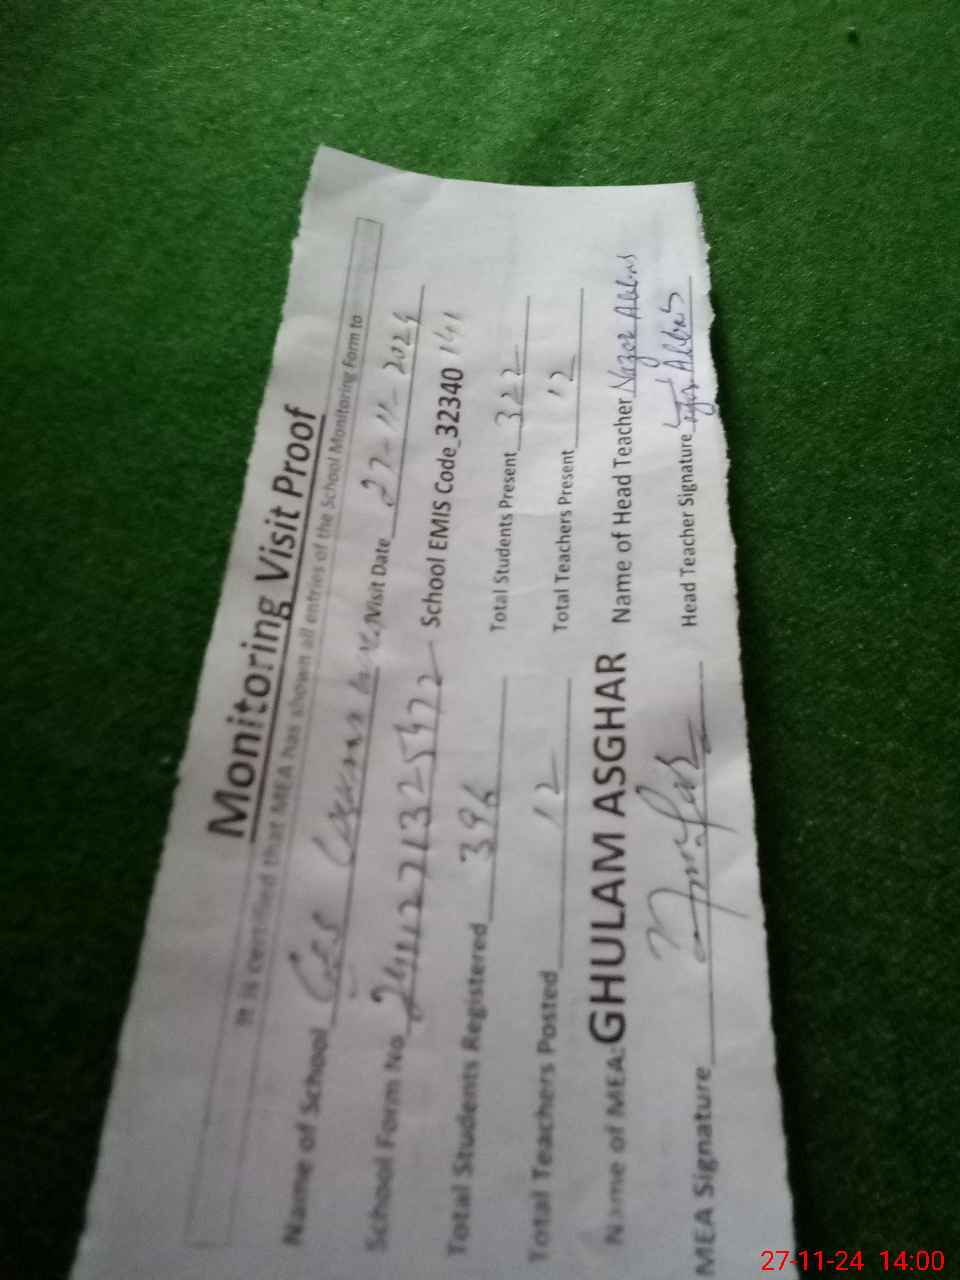 Monitoring Visit Proof
It is certified that MEA has shown all entries of the School Monitoring Form to
Name of School Visit Date 27-11-2024
School Form No School EMIS Code 32340141
Total Students Registered 396 Total Students Present 322
Total Teachers Posted 12 Total Teachers Present 12
Name of MEA: GHULAM ASGHAR Name of Head Teacher Nazar Abbas
MEA Signature Head Teacher Signature
27-11-24 14:00